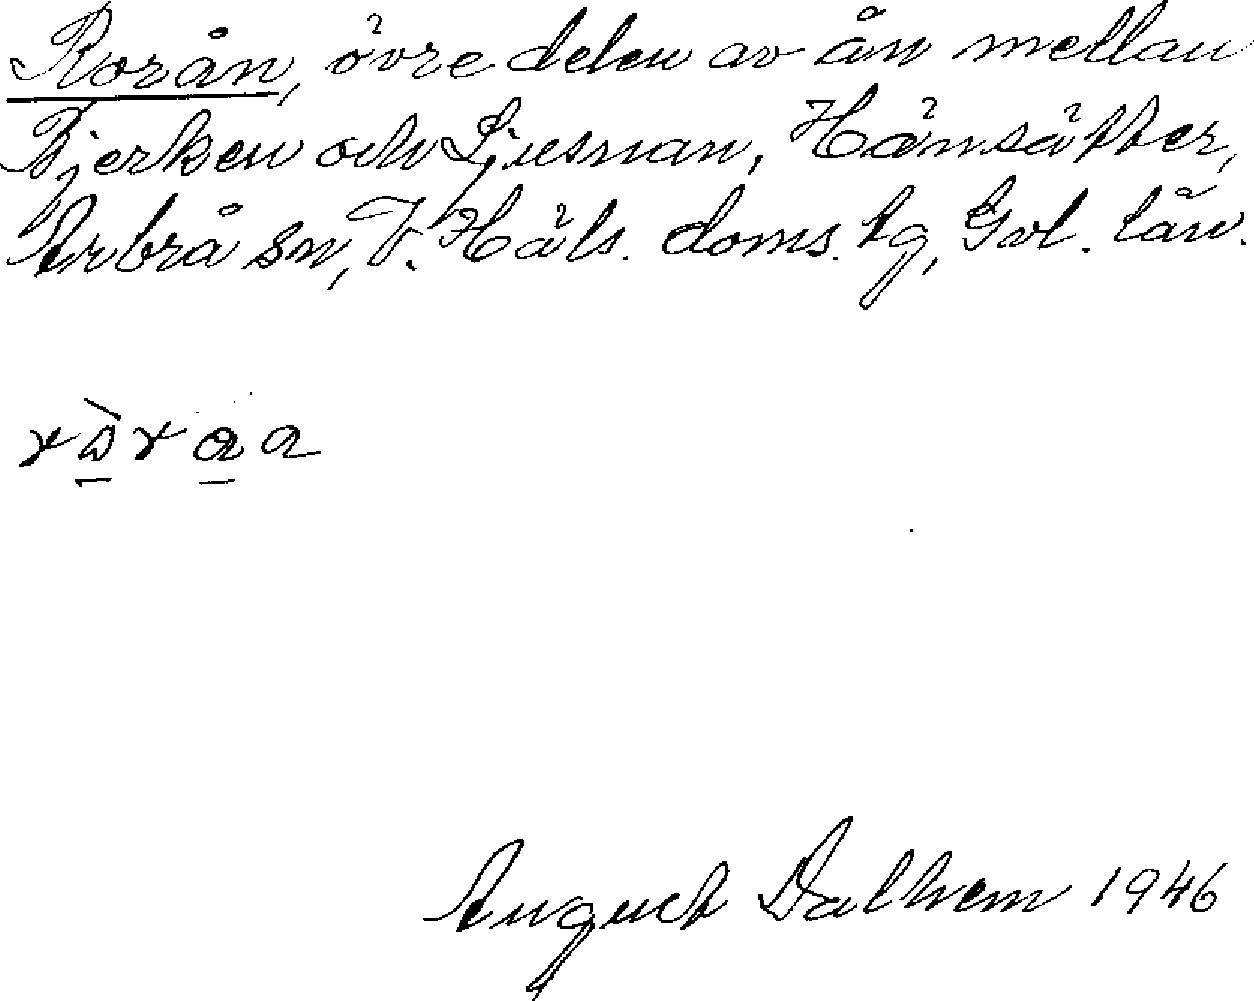 Rorån, övre delen av ån mellan
Tjerken och Ljusnan, Hämsätter,
Arbrå sn, V. Häls. doms. tg, Gvl. län.
August Dalhem 1946